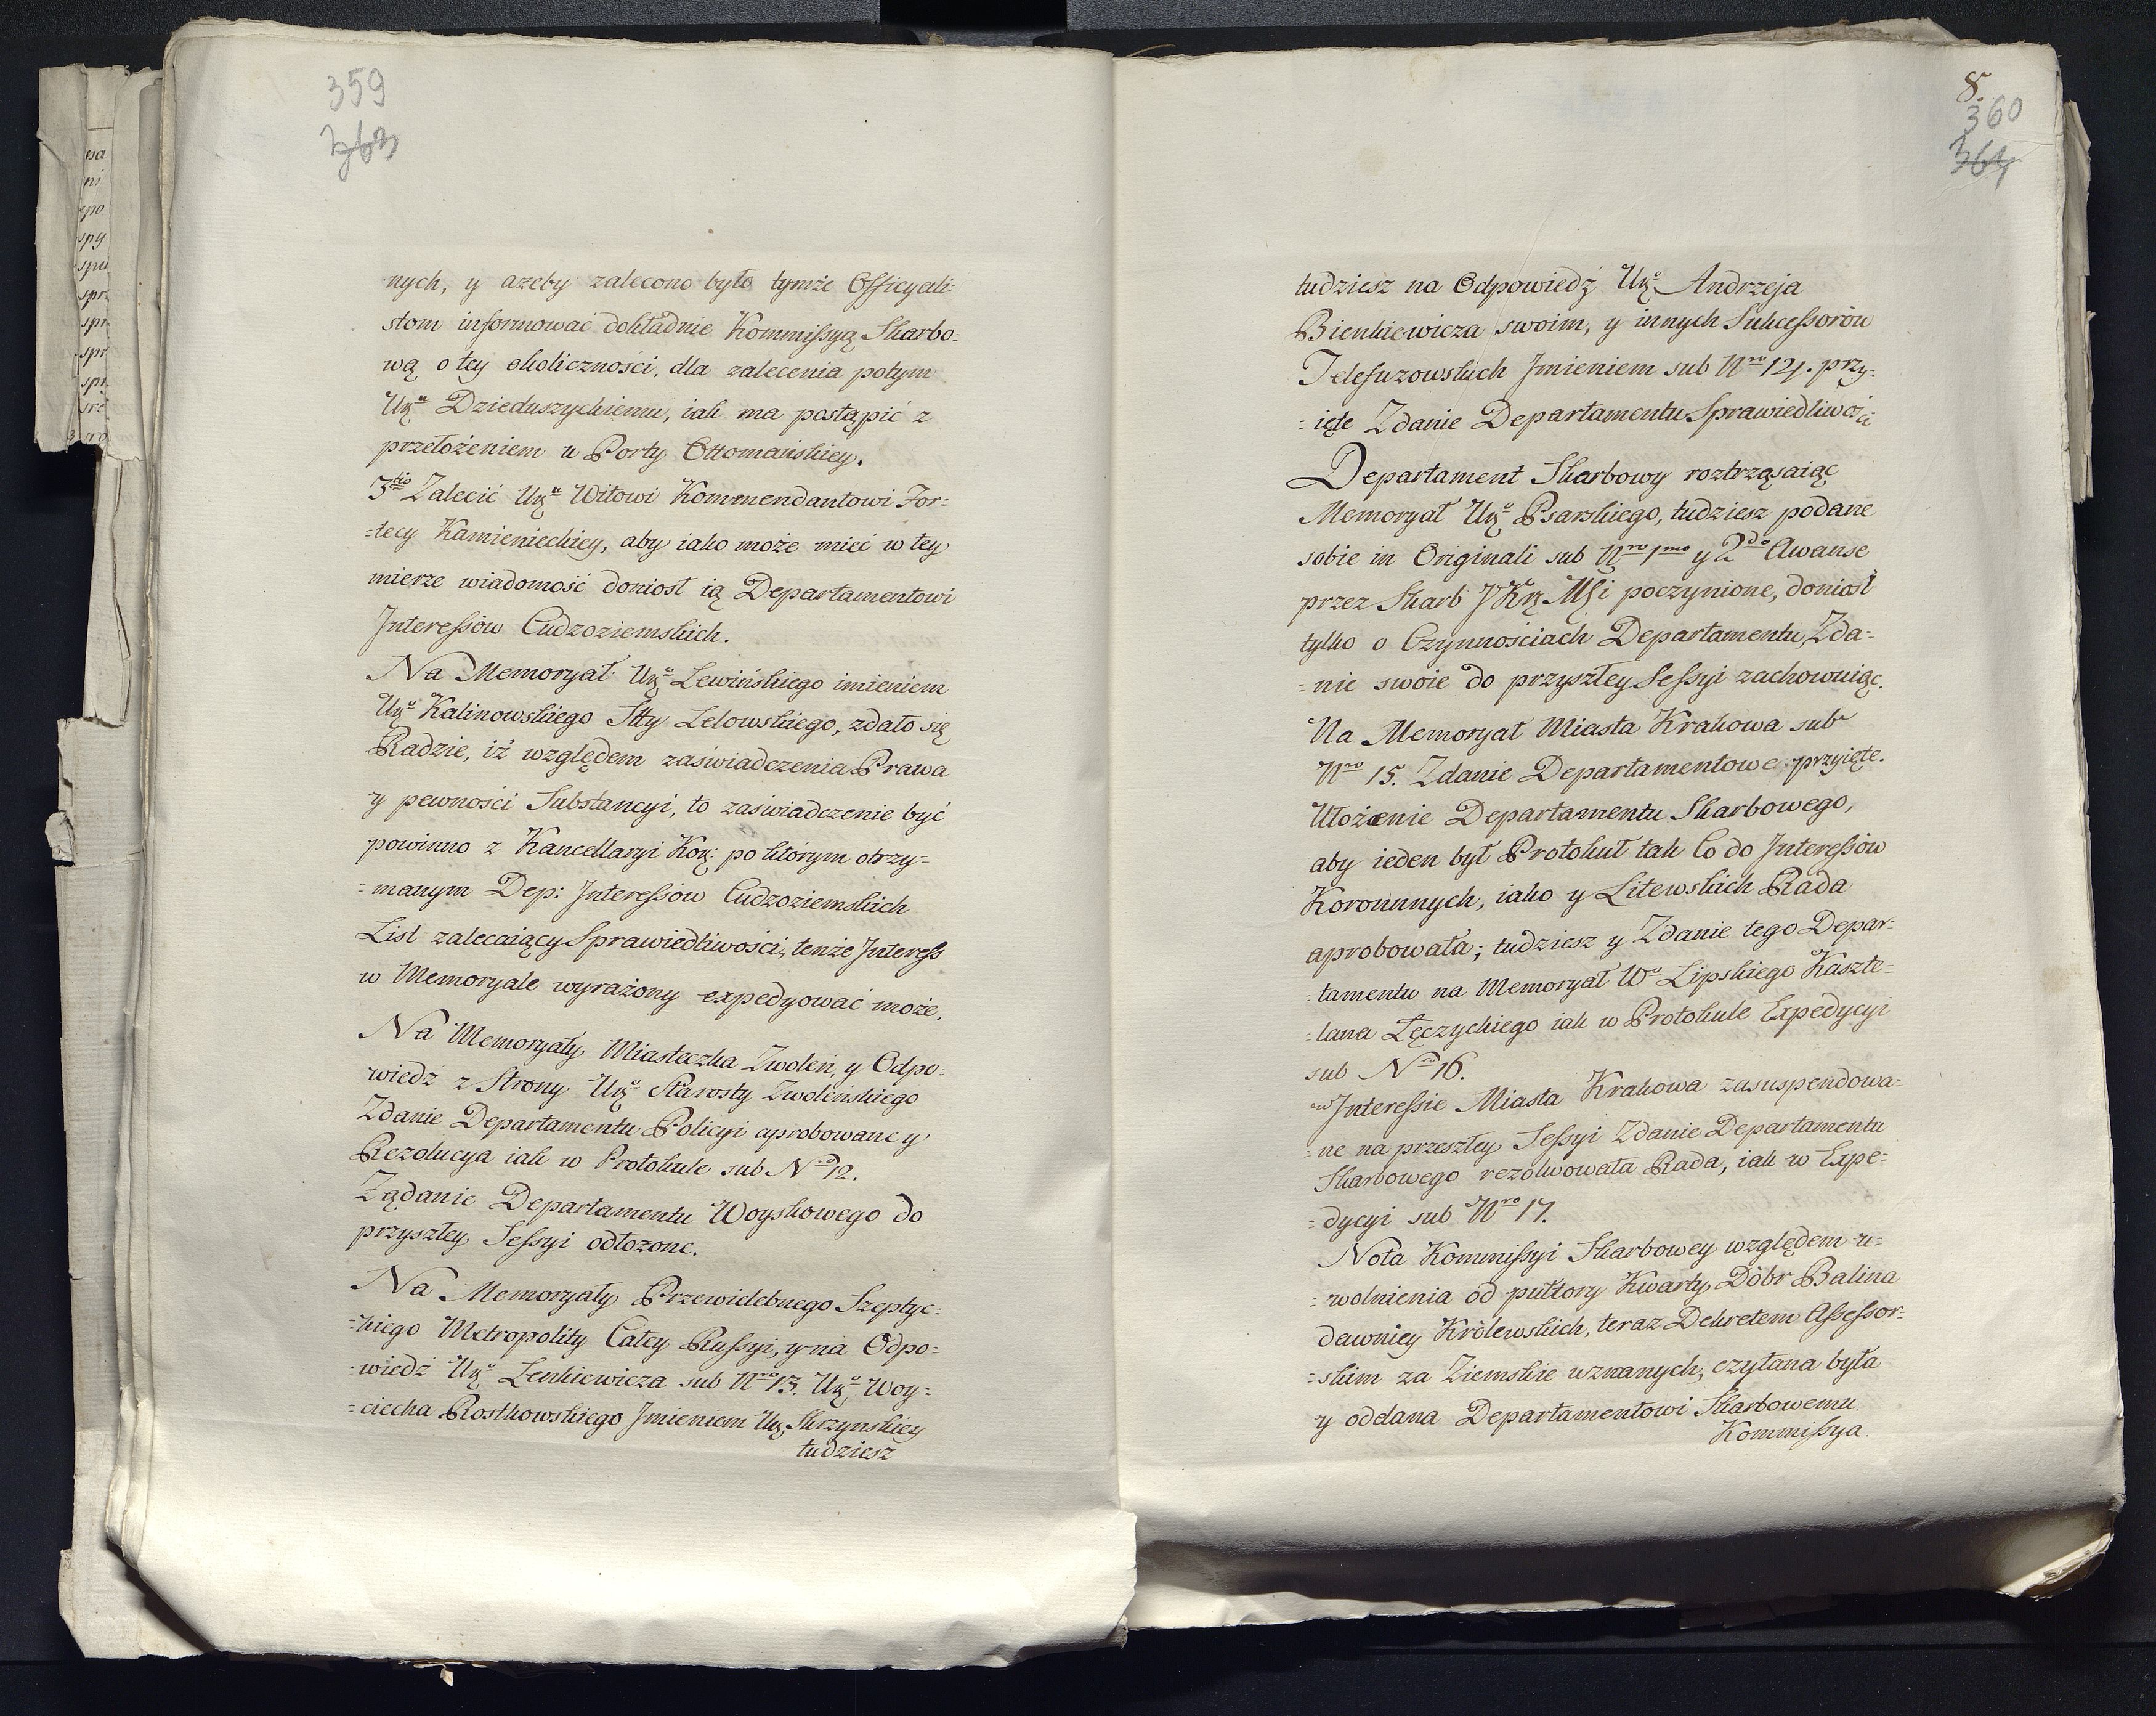 359
363
nych, y azeby zalecono było tymże Officyali-
stom informować dokładnie Kommissyą Skarbo-
wą o tey okoliczności, dla zalecenia potym
Urᵘ Dzieduszyckiemu, iak ma postąpić z
przełożeniem u Porty Ottomańskiey.
3tio Zalecić Urᵘ Witowi Kommendantowi For-
=tecy Kamienieckiey, aby iako może mieć w tey
mierze wiadomość doniosł ią Departamentowi
Interessów Cudzoziemskich.
Na Memoryał Urº Lewińskiego imieniem
Urº Kalinowskiego Stty Zelowskiego, zdało się
Radzie, iż względem zaświadczenia Prawa
y pewności Substancyi, to zaświadczenie być
powinno z Kancellaryi Kor: po którym otrzy=
=manym Dep: Interessow Cudzoziemskich
List zalecaiący Sprawiedliwości, tenże Interess
w Memoryale wyrażony expedyować może.
Na Memoryały Miasteczka Zwoleń, y Odpo-
wiedź z Strony Urº Starosty Zwoleńskiego
Zdanie Departamentu Policyi aprobowane y
Rezolucya iak w Protokule sub Nro 12.
Ządanie Departamentu Woyskowego do
przyszłey Sessyi odłożone.
Na Memoryały Przewielebnego Szeptyc=
=kiego Metropolity Całey Russyi, y na Odpo=
=wiedź Urº Lenkiewicza sub Nro 13. Urº Woy=
=ciecha Rostkowskiego Jmieniem Ur Skrzynskiey
tudziesz
8.
360
364
tudziesz na Odpowiedź Urº Andrzeja
Bienkiewicza swoim, y innych Sukcessorów
Telefuzowskich Jmieniem sub Nro 14. przy=
=ięte Zdanie Departamentu Sprawiedliwości
Departament Skarbowy roztrząsaiąc
Memoryał Urº Psarskiego, tudziesz podane
sobie in Originali sub Nro 1mo y 2do Awanse
przez Skarb JKr Msi poczynione, doniosł
tylko o Czynnościach Departamentu, Zda=
=nie swoie do przyszłey Sessyi zachowuiąc.
Na Memoryał Miasta Krakowa sub
Nro 15. Zdanie Departamentowe przyięte.
Ułożenie Departamentu Skarbowego,
aby ieden był Protokuł tak Co do Interessów
Koronnych, iako y Litewskich Rada
aprobowała; tudziesz y Zdanie tego Depar-
=tamentu na Memoryał Wº Lipskiego Kaszte=
=lana Łęczyckiego iak w Protokule Expedycyi
sub Nro 16.
w Interessie Miasta Krakowa zasuspendowa=
=ne na przeszłey Sessyi Zdanie Departamentu
Skarbowego rezolwowała Rada, iak w Expe=
=dycyi sub Nro 17.
Nota Kommissyi Skarbowey względem u=
=wolnienia od pułtory Kwarty Dóbr Balina
dawniey Królewskich, teraz Dekretem Assessor=
=skim za Ziemskie uznanych, czytana była
y oddana Departamentowi Skarbowemu.
Kommissya.